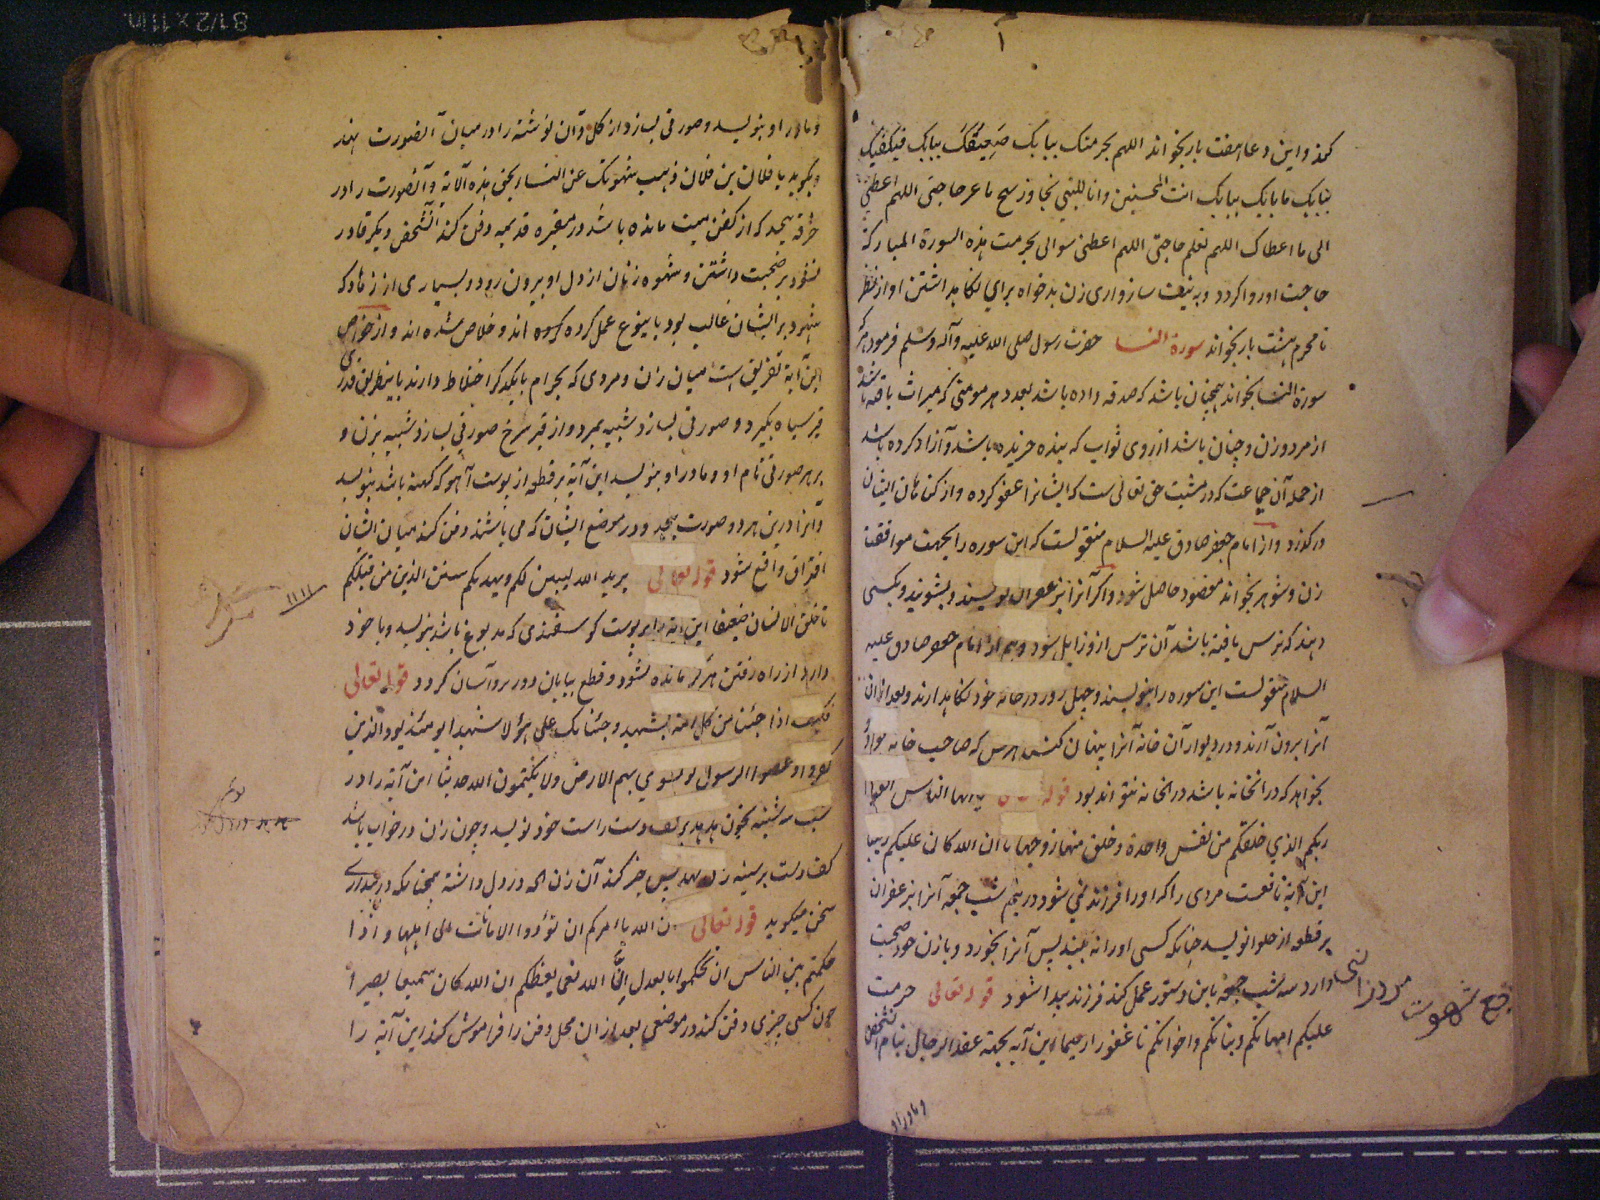 کند و این دعا هفت بار بخواند اللهم بحرمتک ببابک ببابک
ببابک ببابک انت المحسنین اللهم اعطنی
الی ما اعطاک اللهم تعلم حاجتی اللهم اعطنی سوالی بحرمت هذه السورة المبارکة
حاجت او روا گردد و به نیت سازواری زن بدخواه برای نگاهداشتن او از نظر
نامحرم هشت بار بخواند سورة النسا حضرت رسول صلی الله علیه و آله و سلم فرمود هرکه
سورة النسا بخواند همچنان باشد که صدقه داده باشد بعدد هر مومنی که میراث یافته باشد
از مرد و زن و چنان باشد از روی ثواب که بنده خریده باشد و آزاد کرده باشد
از جمله آن جماعت که در مشیت حق تعالی است که ایشانرا عفو کرده و از گناهان ایشان
در گذرد و از امام جعفر صادق علیه السلام منقولست که این سوره را بجهت موافقت
زن و شوهر بخواند مقصود حاصل شود و اگر آنرا بزعفران نویسند و بشویند و بکسی
دهند که ترس یافته باشد آن ترس ازو زایل شود و هم از امام جعفر صادق علیه
السلام منقولست این سوره را بنویسند و چهل روز در خانه خود نگاهدارند و بعد از آن
آنرا برون آرند و در دیوار آن خانه آنرا پنهان کنند هر کس که صاحب خانه
بخواهد که در آنخانه باشد در آنخانه نتواند بود قوله یا ایها الناس اتقوا
ربکم الذی خلقکم من نفس واحدة و خلق منها زوجها تا ان الله کان علیکم رقیبا
این آیة نافعست مردی را که او را فرزند نمی شود در نیم شب جمعه آنرا بزعفران
بر قطعه از حلوا نویسد چنانکه کسی او را نه بیند پس آنرا بخورد و با زن خود صحبت
دارد سه شب جمعه باین دستور عمل کند فرزند پیدا شود قوله تعالی حرمت
علیکم امهاتکم و بناتکم و اخواتکم تا غفورا رحیما این آیه بجهته عقد الرجال بنام آنشخص
و مادر او
دفع شهوت مرد از النسا
و مادر او بنویسد و صورتی بسازد از گل و آن نوشته را در میان آنصورت نهند
و بگوید یا فلان بن فلان ذهبت شهوتک عن النسا بحق هذه الآیة و آنصورت را در
خرقه پیچد که از کفن میت مانده باشد در مقبره قدیمه دفن کند آنشخص دیگر قادر
نشود بر صحبت داشتن و شهوه زنان از دل او بیرون رود و بسیاری از زهاد که
شهوه بر ایشان غالب بود باینوع عمل کرده اند و خلاص شده اند و از خواص
این آیة تفریق است میان زن و مردی که بحرام با یکدیگر اختلاط دارند باینطریق قدری
قیر سیاه بگیرد و صورتی بسازد شبیه بمرد و از قیر سرخ صورتی بسازد شبیه بزن و
بر هر صورتی نام او و مادر او بنویسد این آیة بر قطعه از پوست آهو که کهنه باشد بنویسد
و آنرا در بن هر دو صورت پیچد و در موضع ایشان که می باشند دفن کند میان ایشان
افتراق واقع شود قوله تعالی یرید الله لیبین لکم و یهدیکم سنن الذین من قبلکم
تا خلق الانسان ضعیفا این آیه را بر پوست گوسفندی که مدبوغ باشد بنویسد و با خود
دارد از راه رفتن هرگز مانده نشود و قطع بیابان و ور برو آسان گردد قوله تعالی
فکیف اذا جئنا من کل امة بشهید و جئنا بک علی هؤلا شهیدا یومئذ یود الذین
کفروا و عصوا الرسول لو تسوی بهم الارض و لا یکتمون الله حدیثا این آیة را در
شب سه شنبه بخون هدهد بر کف دست راست خود نویسد و چون زن در خواب باشد
کف دست بر سینه زن نهد پس خبر کند آن زن آنچه در دل داشته چنانکه در بیداری
سخن میگوید قوله تعالی ان الله یامرکم ان تؤدوا الامانات الی اهلها و اذا
حکمتم بین الناس ان تحکموا بالعدل ان الله نعما یعظکم ان الله کان سمیعا بصیرا
چون کسی چیزی دفن کند در موضعی بعد از آن محل دفن را فراموش کند این آیة را